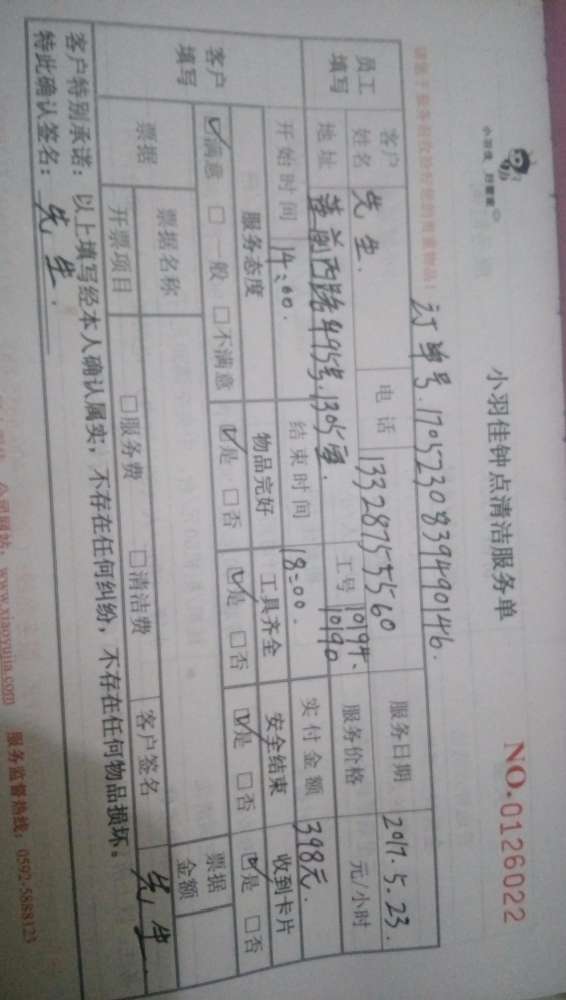 小羽佳 好管家
小羽佳钟点清洁服务单
NO.0126022
订单号.1705230839490146.
员工填写
客户姓名 先生. 电话 13328755560 服务日期 2017.5.23.
地址 莲前西路495号.1305室. 工号 10194. 10190 服务价格 元/小时
开始时间 14:00. 结束时间 18:00. 实付金额 398元.
客户填写
服务态度 物品完好 工具齐全 安全结束 收到卡片
☑满意 □一般 □不满意 ☑是 □否 ☑是 □否 ☑是 □否 ☑是 □否
票据 票据名称 票据金额
开票项目 □服务费 □清洁费 客户签名 先生
客户特别承诺：以上填写经本人确认属实，不存在任何纠纷，不存在任何物品损坏。
特此确认签名：先生.
公司网站：www.xiaoyujia.com 服务监督热线：0592-5888123